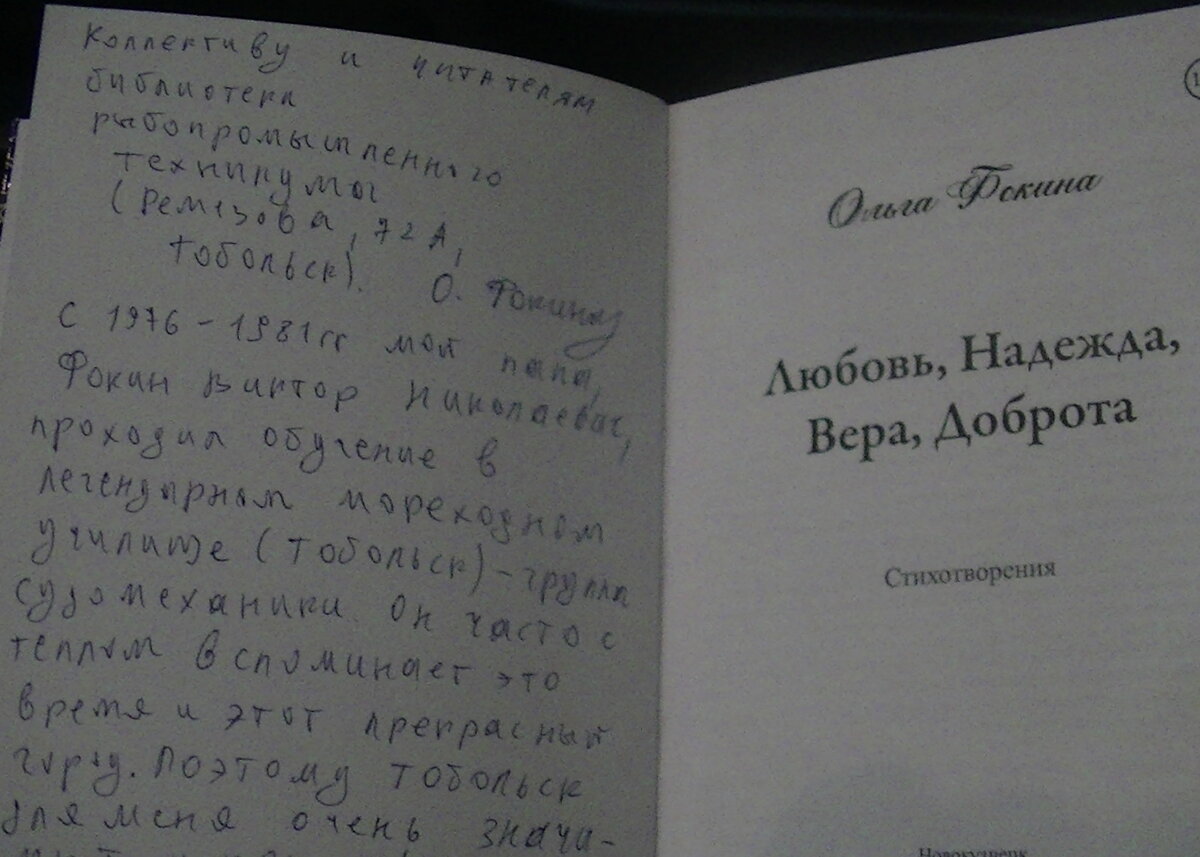 Коллективу и читателям
библиотеки
рыбопромышленного
техникума
(Ремезова, 72А,
Тобольск).
О. Фокина
С 1976 - 1981гг мой папа,
Фокин Виктор Николаевич,
проходил обучение в
легендарном мореходном
училище (Тобольск) - группа
судомеханики. Он часто с
теплом вспоминает это
время и этот прекрасный
город. Поэтому Тобольск
для меня очень значи-
Ольга Фокина
Любовь, Надежда,
Вера, Доброта
Стихотворения
Новокузнецк